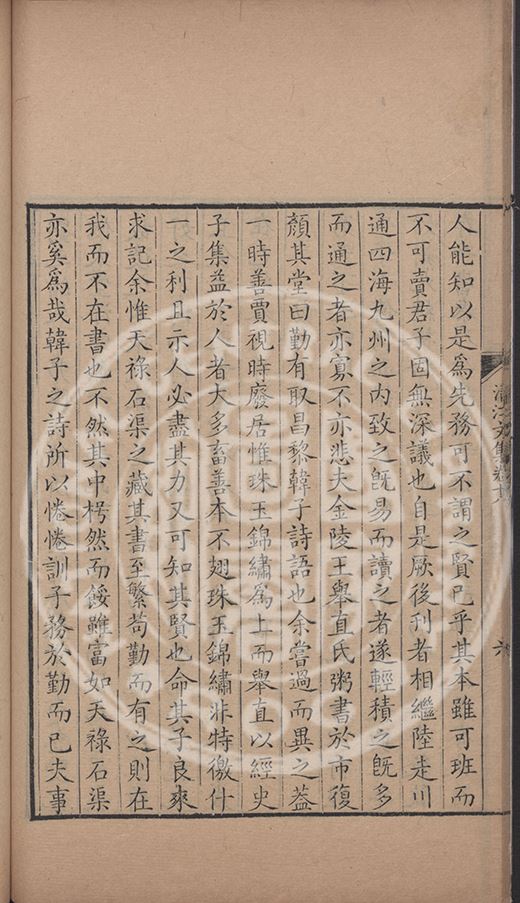 人能知以是爲先務可不謂之賢已乎其本雖可班而
不可賣君子固無深議也自是厥後刋者相繼陸走川
通四海九州之内致之旣易而讀之者遂輕積之旣多
而通之者亦寡不亦悲夫金陵王舉直氏粥書於市復
顏其堂曰勤有取昌黎韓子詩語也余嘗過而異之葢
一時善賈視時廢居惟珠玉錦繡爲上而舉直以經史
子集益於人者大多畜善本不翅珠玉錦繡非特徼什
一之利且示人必盡其力又可知其賢也命其子良來
求記余惟天祿石渠之藏其書至繁苟勤而有之則在
我而不在書也不然其中枵然而餒雖富如天祿石渠
亦奚爲哉韓子之詩所以惓惓訓子務於勤而已夫事
文集卷
六